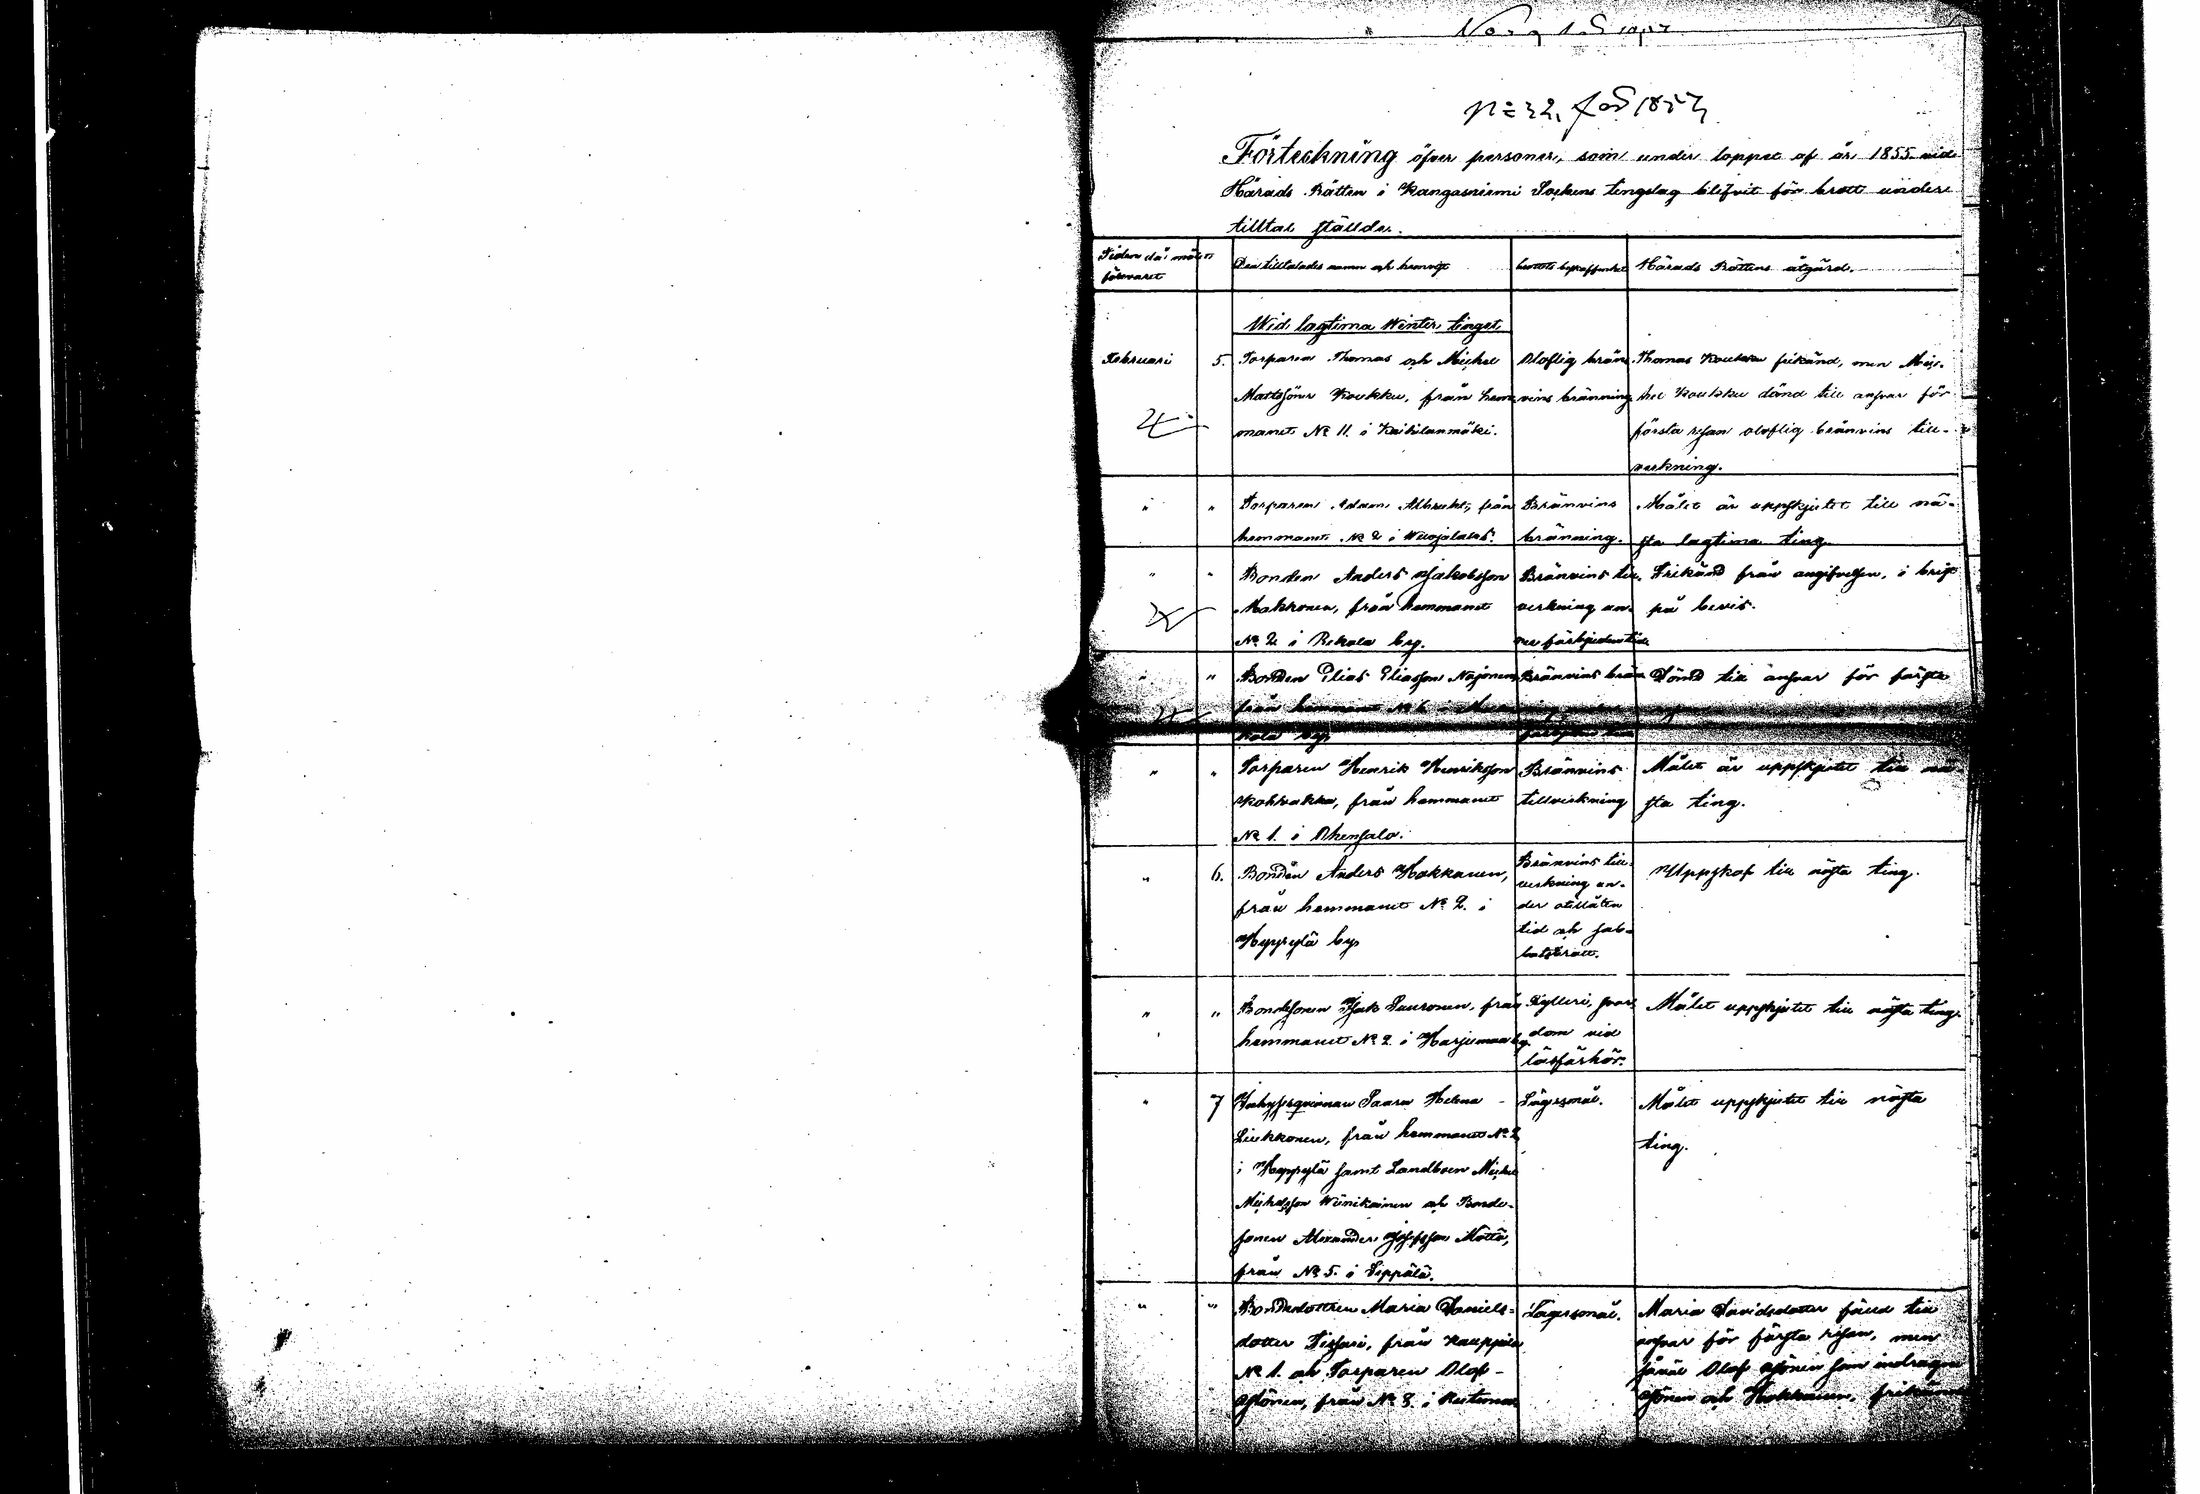 Förteckning öfver personer, som under loppet af år 1855 vid
Härads Rätten i Kangasniemi Sockens tingslag blifvit för brott under
tilltal ställde.
Tiden då målet
förevaret
Den tilltalades namn och hemvist
brottets beskaffenhet
Härads Rättens åtgärd.
Wid lagtima Winter tinget
Februari 5.
Torparen Thomas och Michel
Mattssöner Koukku, från hem-
manet No 11. i
Oloflig brän-
vins bränning
Thomas Koukku frikänd, men Mic-
hel Koukku dömd till ansvar för
första resan oloflig bränvins till-
verkning.
" "
Torparen Adam från
hemmanet No 2 i
Bränvins
bränning.
Målet är uppskjutet till nä-
sta lagtima ting.
" "
Bonden Anders Jakobsson
Makkonen, från hemmanet
No 2 i Rekola by.
Bränvins till-
verkning un-
der förbjuden tid
Frikänd från angifvelsen, i brist
på bevis.
" "
Bonden Elias Eliasson
från hemmanet No 6 i
kola by
Bränvins brän-
Dömd till ansvar för första
" "
Torparen Henrik Henriksson
från hemmanet
No 1. i Ohensalo.
Bränvins
tillverkning
Målet är uppskjutet till nä-
sta ting.
" 6.
Bonden Anders Hokkanen,
från hemmanet No 2. i
Hyyrylä by
Bränvins till-
verkning un-
der otillåten
tid och sab-
batsbrott.
Uppskof till nästa ting.
" "
Bondesonen Isak Pauronen, från
hemmanet No 2 i Harjumaa by
Fylleri, svor-
dom vid
läsförhör.
Målet uppskjutet till nästa ting.
" 7
Inhysesqvinnan Saara Helena
Liukkonen, från hemmanet No 2
i Hyyrylä samt Landboen Michel
Michelsson Wänikainen och Bonde-
sonen Alexander Josefsson Mättö,
från No 5. i Sippälä.
Lägersmål.
Målet uppskjutet till nästa
ting.
" "
Bondedottren Maria Daniels-
dotter Tissari, från Kauppila
No 1. och Torparen Olof
från No 8. i
Lägersmål.
Maria Davidsdotter fälld till
ansvar för första resan, men
såväl Olof som indragne
och Hokkanen, frikände